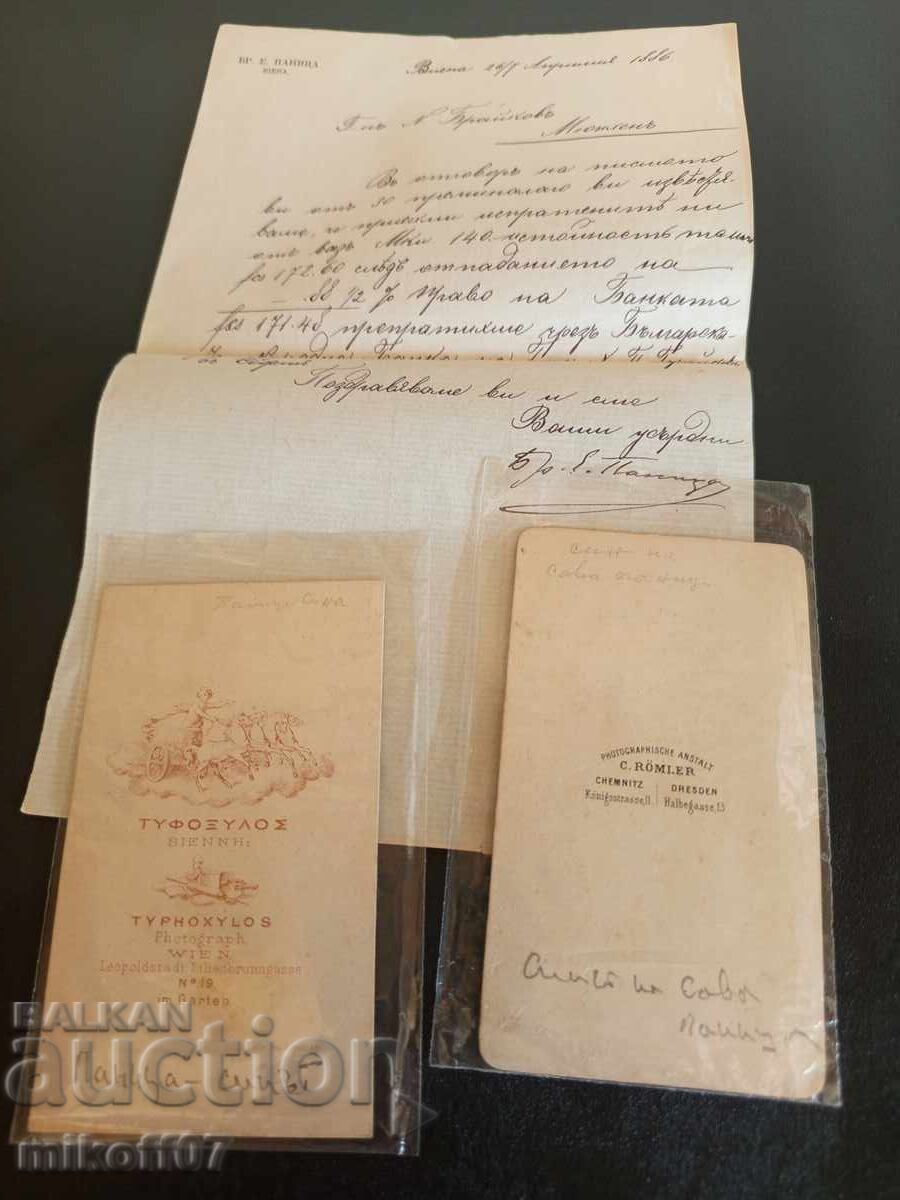 БР. Е. ПАНИЦА
ВІЕНА.
Виена 26/7 Априлия 1886
Г-нъ N Брайковъ
Въ отговоръ на писмото
ви отъ 30 преминалаго ви извѣстя-
ваме, че приехми испратенитѣ ни
отъ вазъ Мки 140.- истойность
fcs 172.60 слѣдъ отпаданието на
— .88 1/2 % право на Банката
fcs 171.48 препратихме чрезъ Българска-
Поздравяваме ви и сме
Ваши усърдни
Бр. Е. Паница
Паница Сина
ΤΥΦΟΞΥΛΟΣ
ΒΙΕΝΝΗ:
TYPHOXYLOS
Photograph.
WIEN
Leopoldstadt
Nº 19
im Garten
Паница - синът
син на
сава паница
PHOTOGRAPHISCHE ANSTALT
C. RÖMLER
CHEMNITZ DRESDEN
Königsstrasse, 11. Halbegasse, 13
Синът на Сава
Паница
BALKAN
auction
mikoff07